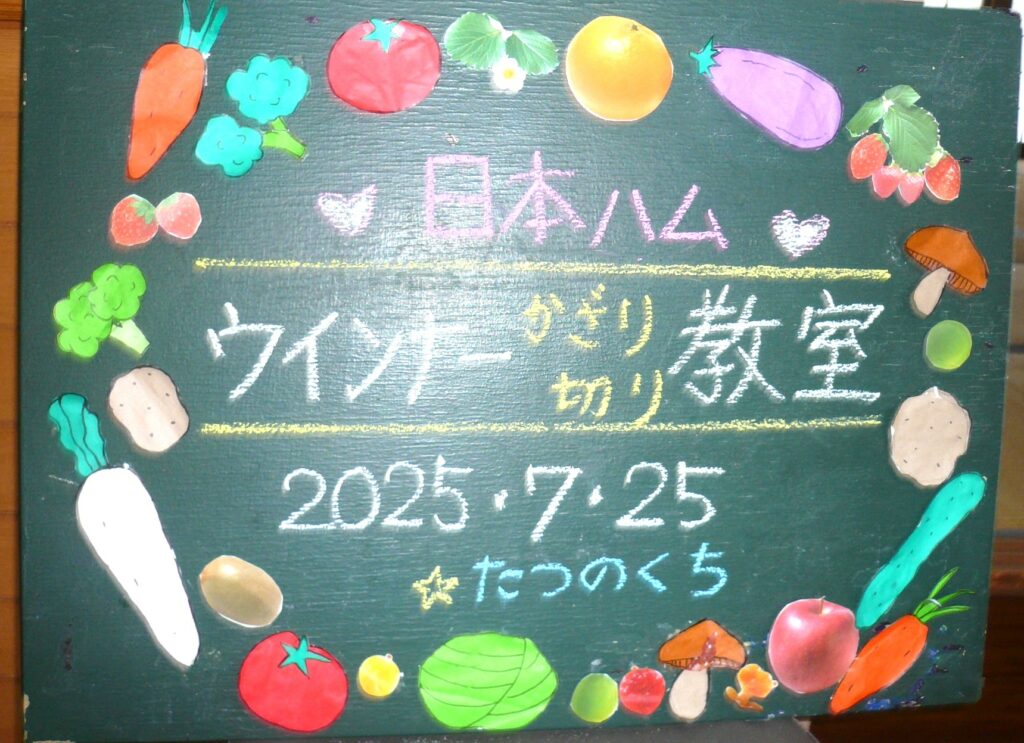 日本ハム
ウインナーかざり切り教室
2025・7・25
☆たつのくち